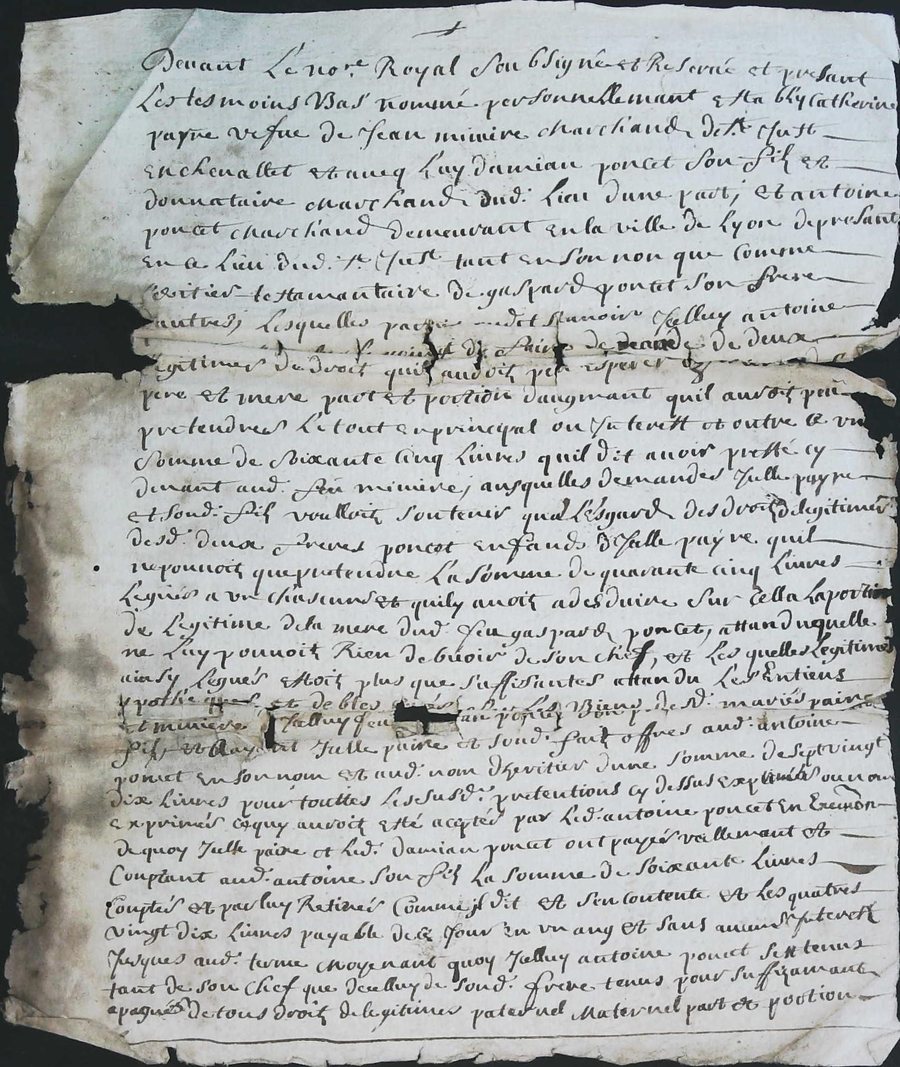 Devant Le no.re Royal Soubsigné et Reservé et presant
Les tesmoins Bas nommé personnellemant estably Catherine
payre vefue de Jean miniere marchand de St Just
En chevallet et aveq Luy damian poncet Son filz et
donnataire marchand dud. Lieu dune part, et antoine
poncet marchand demeurant En la ville de Lyon depresant
En ce Lieu dud. St Just tant en Son non que Comme
heritier testamantaire de gaspard poncet Son frere
dautres, Lesquelles Jcelluy antoine
de faire de deux
Legitimes de droit quil avoit peu esperer
pere et mere part et portion daugmant quil auroit peu
pretendres Le tout en principal ou Jnterest et outre ce vne
Somme de Soixante Cinq Livres quil dit avoir presté cy
devant aud. feu miniere, ausquelles demandes Jcelle payre
et Soud. filz voulloit Soutenir quâ Lesgard des droitz de legitimes
desd. deux freres poncet enfands dJcelle payre quil
ne pouvoit que pretendre La Somme de quarante Cinq Livres
Legués a vn chascuns et quily avoit a desduire Sur Cella La portion
de Legitime dela mere dud. feu gaspard poncet, attandu quelle
ne Luy pouvoit Rien debvoir de Son chef, et Les quelles Legitimes
ainsy Legués estoit plus que Suffisantes attandu Les Entiens
ypotheques et debtes Les Biens desd. mariés paire
et miniere Jcelluy feu
filz et ayant Jcelle paire et Soud. fait offres aud. antoine
poncet en Son nom et aud. nom dheritier dune Somme de Sept vingt
dix Livres pour touttes Les Susd. pretentions cy dessus Exprimés ou non
exprimés cequy auroit esté acepter par Led. antoine poncet en
de quoy Jcelle paire et Led. damian poncet ont payés reellemant et
Comptant aud. antoine Son filz La Somme de Soixante Livres
Comptés et par Luy Retirés Comme Jl dit et Sen Contente et Les quatres
vingt dix Livres payable de ce Jour en vn ang et Sans aucuns Jnterestz
Jusques aud. terme moyenant quoy Jcelluy antoine poncet Sest tenus
tant de Son chef que de celluy de Soud. frere tenus pour Suffizamant
apagnés de tous droitz de legitimes paternel Maternel part et portion